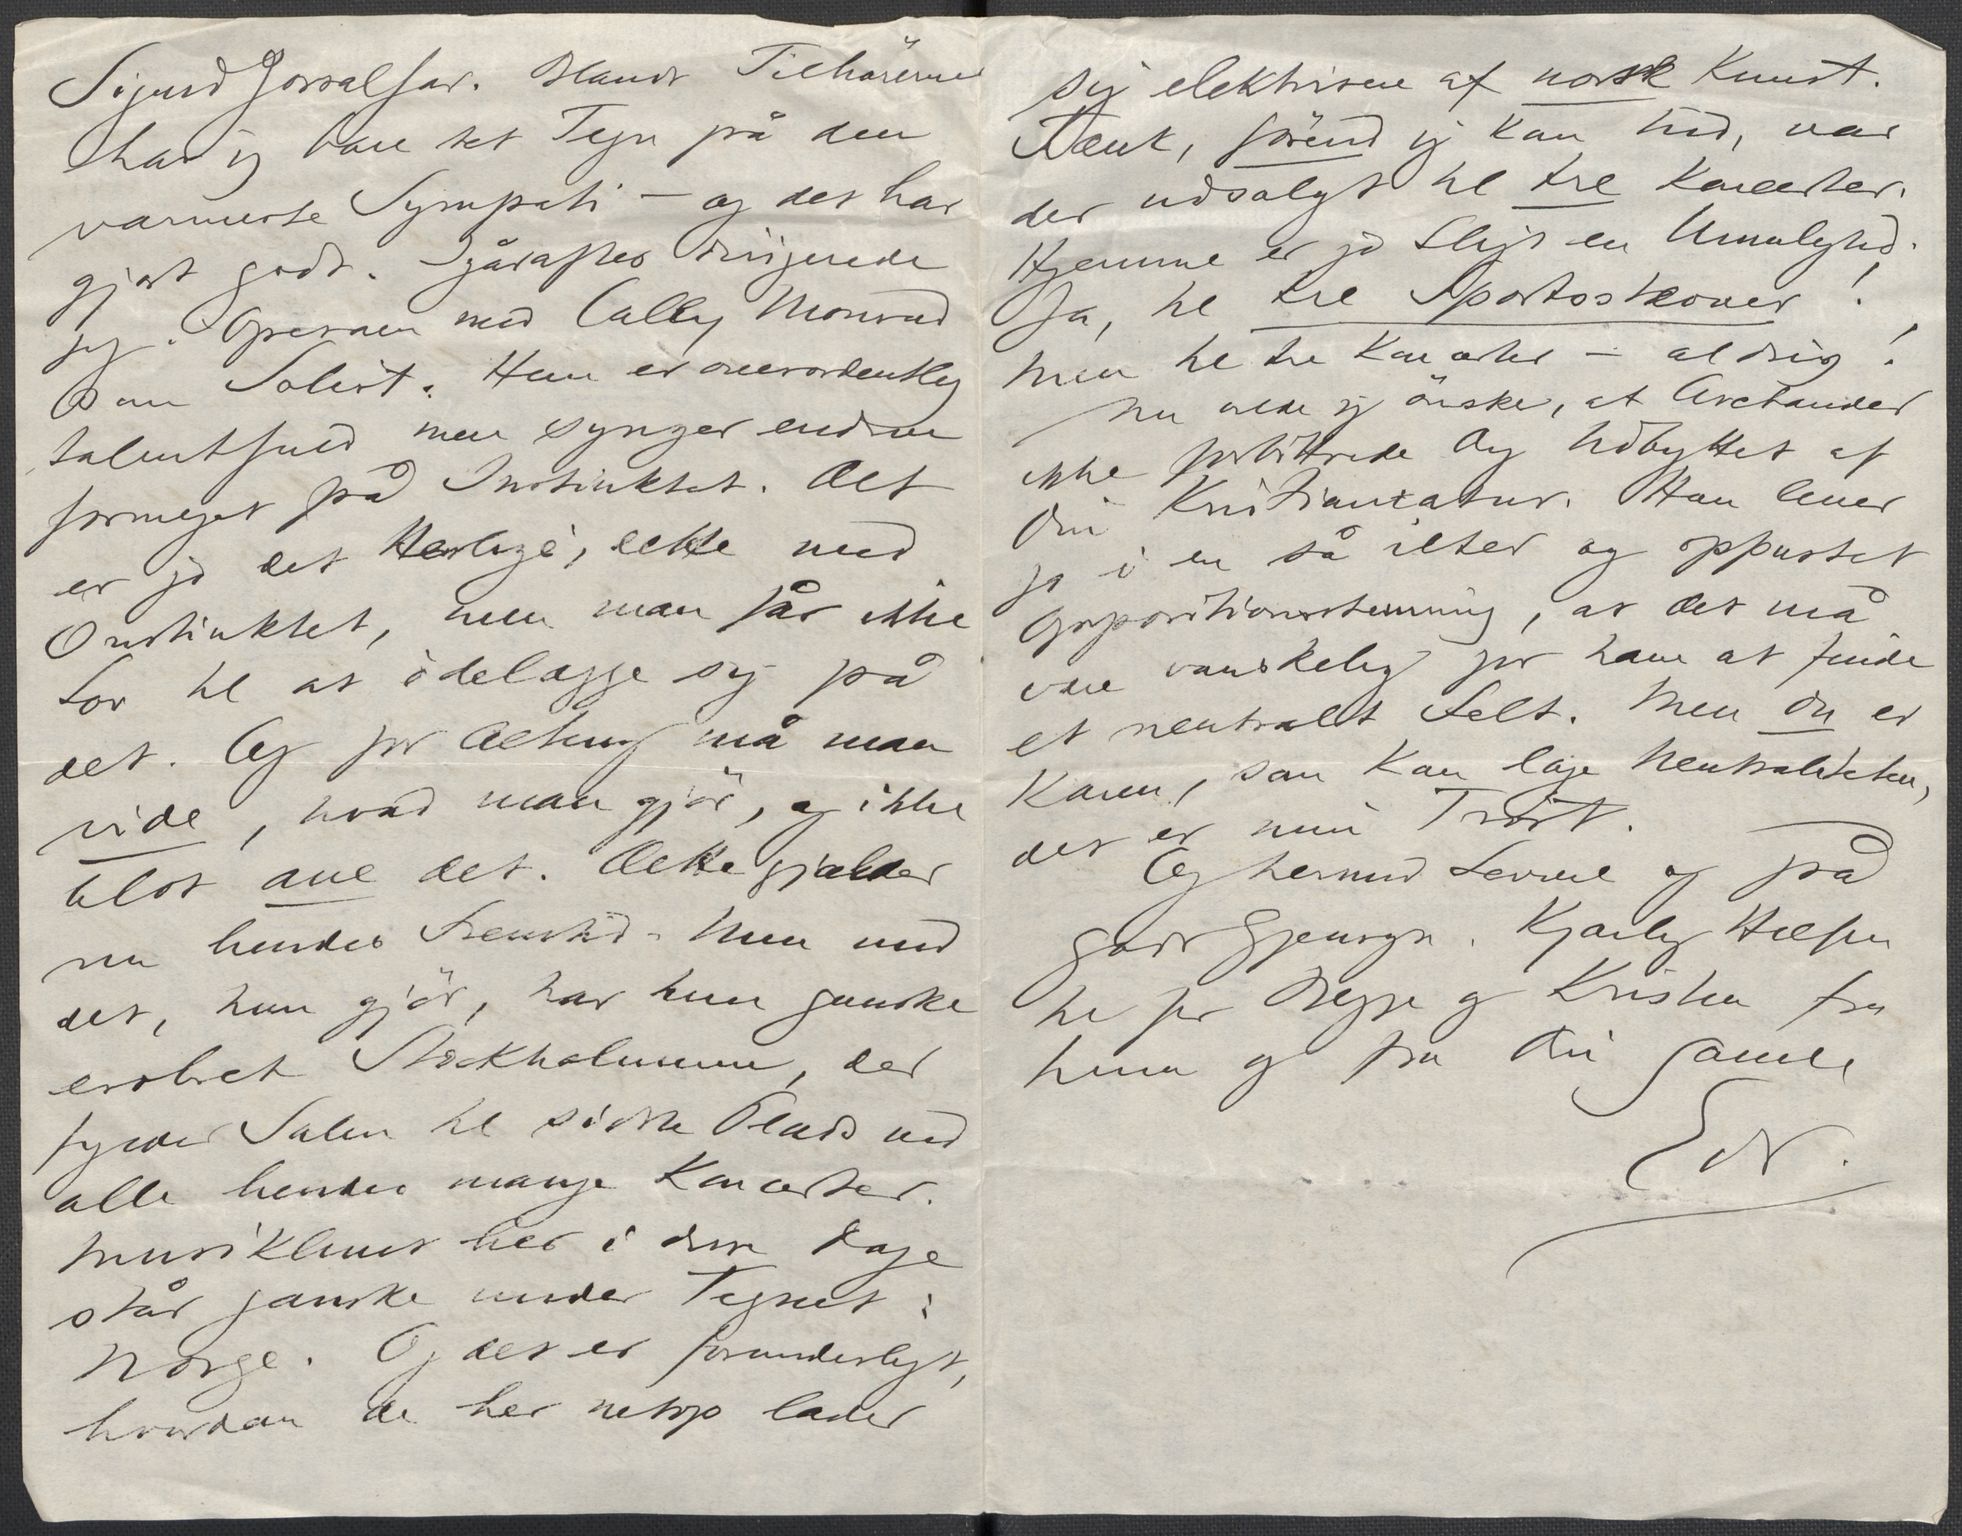 Sigurd Jorsalfar. Blandt Tilhörerne
har jeg bare set Tegn på den
varmeste Sympati – og det har
gjort godt. Igåraftes dirigerede
jeg i Operaen med Cally Monrad
som Solist. Hun er overordentlig
talentfuld men synger endnu
formeget på Instinktet. Det
er jo det Herlige, dette med
Instinktet, men man får ikke
Lov til at ödelægge sig på
det. Og för Alting må man
vide, hvad man gjör, og ikke
blot ane det. Dette gjælder
nu hendes Fremtid. Men med
det, hun gjör, har hun ganske
erobret Stockholmerne, der
fylder Salen til sidste Plads ved
alle hendes mange Koncerter.
Musiklivet her i disse Dage
står ganske under Tegnet:
Norge. Og det er forunderligt,
hvordan de her netop lader
sig elektrisere af norsk Kunst.
Tænk, förend jeg kom hid, var
der udsolgt til tre Koncerter.
Hjemme er jo Sligt en Umulighed.
Ja, til tre Sportsstævner!
Men til tre Koncerter – aldrig!
Nu vilde jeg önske, at Arctander
ikke forbittrede Dig Udbyttet af
Din Kristianiatur. Han lever
jo i en så ilter og oppustet
Oppositionsstemning, at det må
være vanskelig for ham at finde
et neutralt Felt. Men Du er
Karen, som kan lage Neutraliteten,
det er min Tröst.
Og hermed Levvel og på
godt Gjensyn. Kjærlig Hilsen
til for Begge og Kristen fra
Nina og fra Din gamle
Edv.